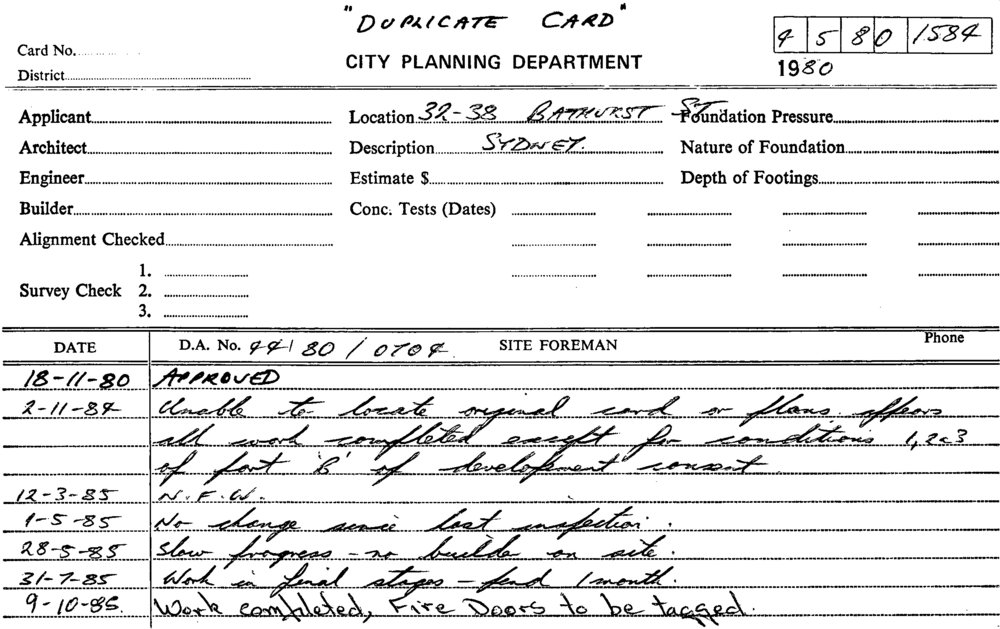 "DUPLICATE CARD"
4 5 80 1584
Card No.
CITY PLANNING DEPARTMENT
1980
District
Applicant
Location 32-38 BATHURST ST
Foundation Pressure
Architect
Description SYDNEY.
Nature of Foundation
Engineer
Estimate $
Depth of Footings
Builder
Conc. Tests (Dates)
Alignment Checked
1.
Survey Check 2.
3.
DATE D.A. No. 44/80/0704 SITE FOREMAN Phone
18-11-80 APPROVED
2-11-84 Unable to locate original card or plans. appears
all work completed except for conditions 1, 2 & 3
of part 'B' of development consent
12-3-85 N.F.W.
1-5-85 No change since last inspection.
28-5-85 Slow progress - no builder on site.
31-7-85 Work in final stages - fend 1 month.
9-10-85. Work completed, Fire Doors to be tagged.